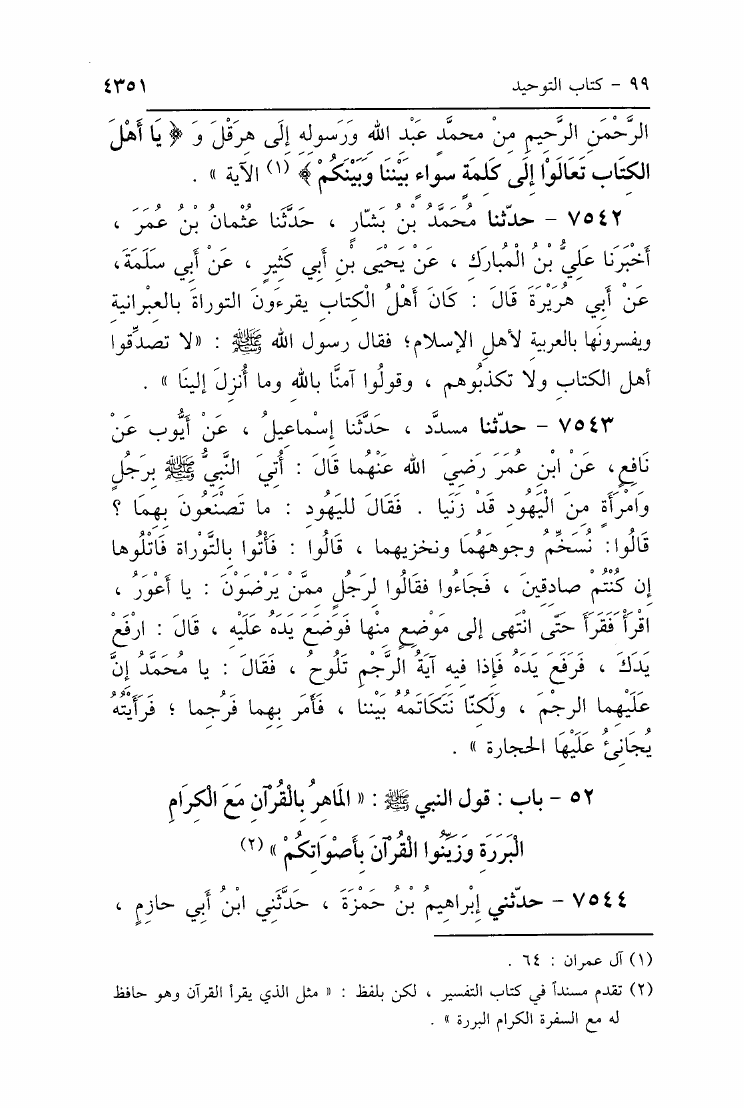 ٩٩ – كتاب التوحيد ٤٣٥١
الرَّحْمَنِ الرَّحِيمِ مِنْ محمدٍ عَبْدِ الله وَرَسولِهِ إِلَى هِرَقْلَ وَ ﴿ يَا أَهْلَ
الكِتَابِ تَعَالَوْا إِلَى كَلِمَةٍ سواءٍ بَيْنَنَا وَبَيْنَكُمْ ﴾ (١) الآية » .
٧٥٤٢ – حدّثنا مُحَمَّدُ بْنُ بَشّارٍ ، حَدَّثَنَا عثْمانُ بْنُ عُمَرَ ،
أَخْبَرَنَا عَلِيُّ بْنُ الْمُبارَكِ ، عَنْ يَحْيَى بْنِ أَبي كَثِيرٍ ، عَنْ أَبي سَلَمَةَ،
عَنْ أَبي هُرَيْرَةَ قَالَ : كَانَ أَهْلُ الْكِتابِ يقرءونَ التوراةَ بالعِبْرانية
ويفسرونَها بالعربية لأهلِ الإسلام؛ فقال رسول الله ﷺ : «لا تصدِّقوا
أهل الكتابِ ولا تكذبُوهم ، وقولُوا آمنَّا باللهِ وما أُنزِلَ إلينَا » .
٧٥٤٣ – حدّثنا مسدَّد ، حَدَّثَنَا إسْماعِيلُ ، عَنْ أَيُّوب عَنْ
نَافِعٍ، عَنْ ابْنِ عُمَرَ رَضِيَ الله عَنْهُما قَالَ : أُتِيَ النَّبِيُّ ﷺ بِرَجُلٍ
وَامْرَأَةٍ مِنَ الْيَهُودِ قَدْ زَنَيا . فَقَالَ لليَهُودِ : ما تَصْنَعُونَ بِهِمَا ؟
قَالُوا: نُسَخِّمُ وجوهَهُما ونخزيهما ، قَالُوا : فَأْتُوا بِالتَّوْراةِ فَاتْلُوها
إن كُنْتُمْ صادقِينَ ، فَجَاءُوا فقَالُوا لِرَجُلٍ ممَّنْ يَرْضَوْنَ : يا أَعْوَرُ ،
اقْرَأْ فَقَرَأَ حَتَّى انْتَهى إلى مَوْضِعٍ مِنْها فَوَضَعَ يَدَهُ عَلَيْهِ ، قَالَ : ارْفَعْ
يَدَكَ ، فَرَفَعَ يَدَهُ فَإِذا فِيهِ آيَةُ الرَّجْمِ تَلُوحُ ، فَقَالَ : يا مُحَمَّدُ إِنَّ
عَلَيْهِما الرجْمَ ، وَلَكِنّا نَتَكَاتَمُهُ بَيْننا ، فَأَمَرَ بِهِما فَرُجما ؛ فَرَأَيْتُهُ
يُجَانِئُ عَلَيْهَا الحجارة » .
٥٢ – باب : قول النبي ﷺ : « الْمَاهِرُ بِالْقُرْآنِ مَعَ الْكِرَامِ
الْبَرَرَةِ وَزَيِّنُوا الْقُرْآنَ بِأَصْوَاتِكُمْ » (٢)
٧٥٤٤ – حدّثني إِبْراهِيمُ بْنُ حَمْزَةَ ، حَدَّثَنِي ابْنُ أَبي حازِمٍ ،
(١) آل عمران : ٦٤ .
(٢) تقدم مسنداً في كتاب التفسير ، لكن بلفظ : « مثل الذي يقرأ القرآن وهو حافظ
له مع السفرة الكرام البررة » .